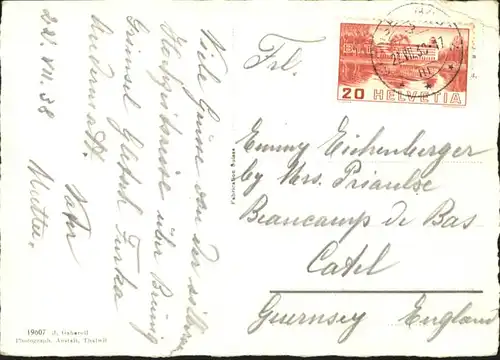 22. VII. 38
Viele Grüsse von der schönen
Hochgebirgsreise über Brünig
Grimsel Gletsch Furka
Andermatt.
Vater
Mutter.
Frl.
Emmy Eichenberger
by Mrs. Priaulse
Beaucamp de Bas
Catel
Guernsey England
B.I.T.
20 HELVETIA
Fabrication Suisse
19607 J. Gaberell
Photograph. Anstalt, Thalwil